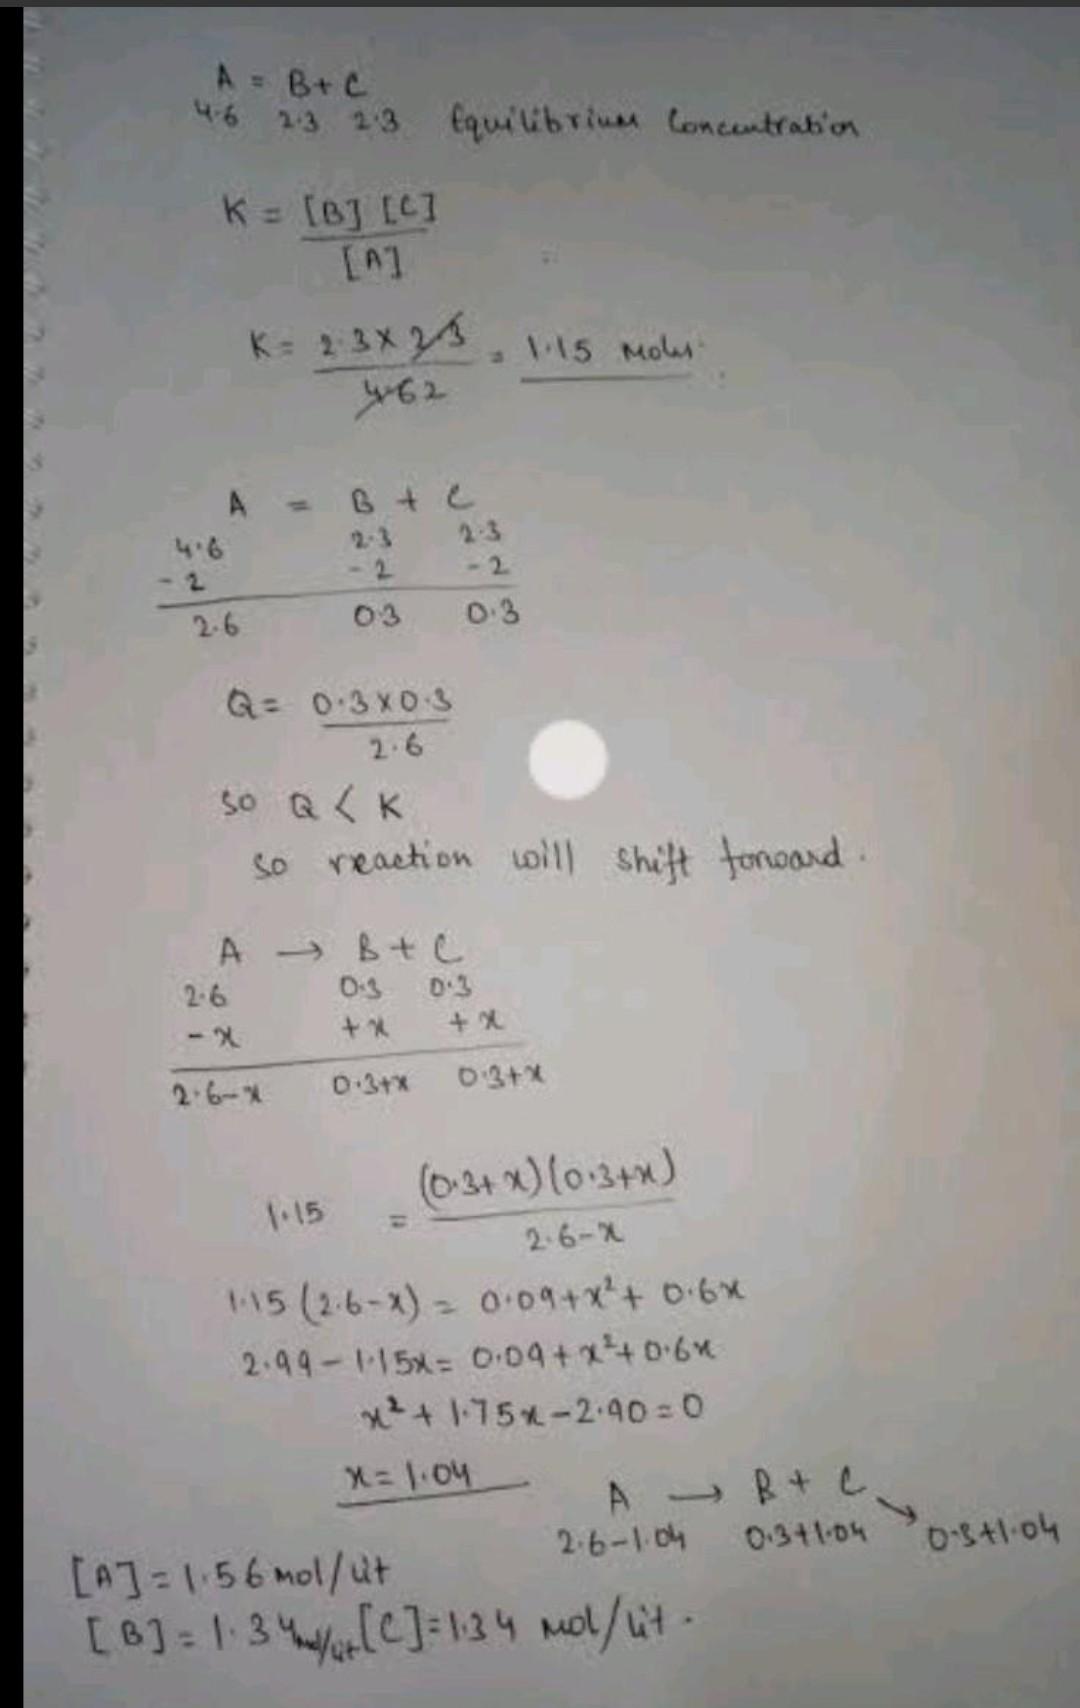 A = B+ C
4.6 2.3 2.3 Equilibrium Concentration
K = [B] [C]
[A]
K = 2.3 x 2.3 = 1.15 Moles.
4.6 2
A = B + C
4.6 2.3 2.3
- 2 - 2 - 2
2.6 0.3 0.3
Q = 0.3 x 0.3
2.6
so Q < K
so reaction will shift forward.
A → B + C
2.6 0.3 0.3
- x + x + x
2.6-x 0.3+x 0.3+x
1.15 = (0.3+x)(0.3+x)
2.6-x
1.15 (2.6-x) = 0.09+x²+ 0.6x
2.99 - 1.15x = 0.09 + x²+ 0.6x
x² + 1.75x - 2.90 = 0
x = 1.04
A → B + C
2.6-1.04 0.3+1.04 0.3+1.04
[A] = 1.56 mol/lit
[B] = 1.34 mol/lit [C] = 1.34 mol/lit.